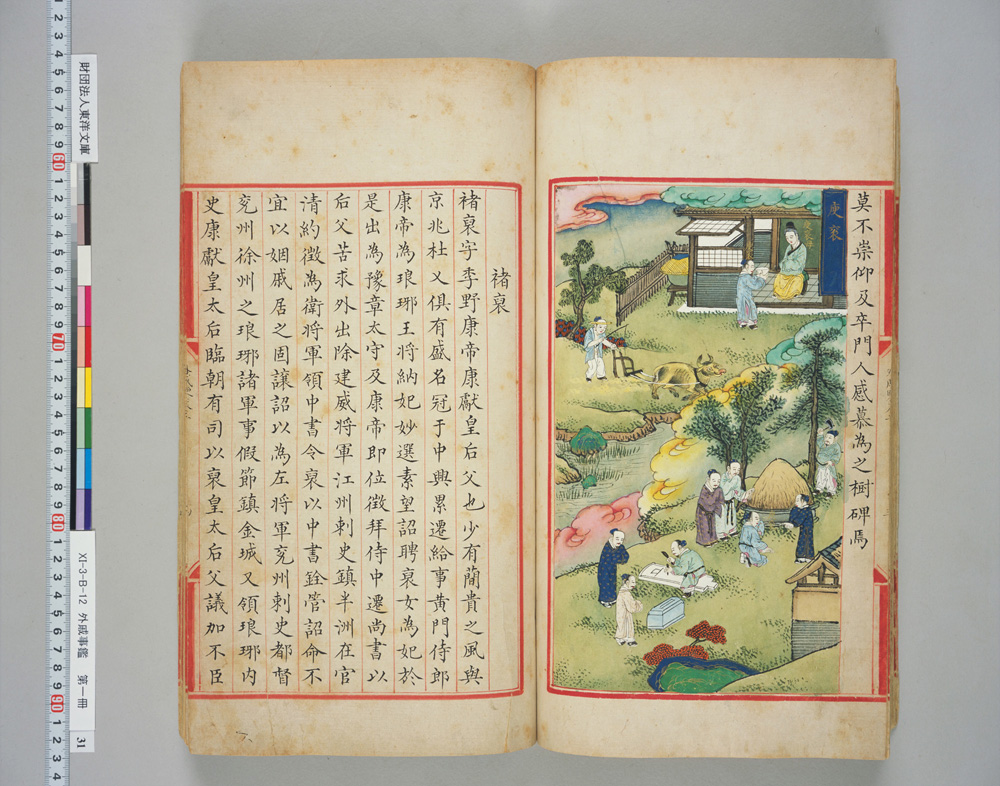 莫不崇仰及卒門人感慕為之樹碑焉
庾袞
褚裒
褚裒字季野康帝康獻皇后父也少有簡貴之風與
京兆杜乂俱有盛名冠于中興累遷給事黃門侍郎
康帝為琅琊王將納妃妙選素望詔聘裒女為妃於
是出為豫章太守及康帝即位徵拜侍中遷尚書以
后父苦求外出除建威將軍江州刺史鎮半洲在官
清約徵為衛將軍領中書令裒以中書銓管詔命不
宜以姻戚居之固讓詔以為左將軍兗州刺史都督
兗州徐州之琅琊諸軍事假節鎮金城又領琅琊內
史康獻皇太后臨朝有司以裒皇太后父議加不臣
財団法人東洋文庫
XI-3-B-12 外戚事鑑 第一冊 31
2 3 4 5 6 7 8 9 60 1 2 3 4 5 6 7 8 9 70 1 2 3 4 5 6 7 8 9 80 1 2 3 4 5 6 7 8 9 90 1 2 3 4